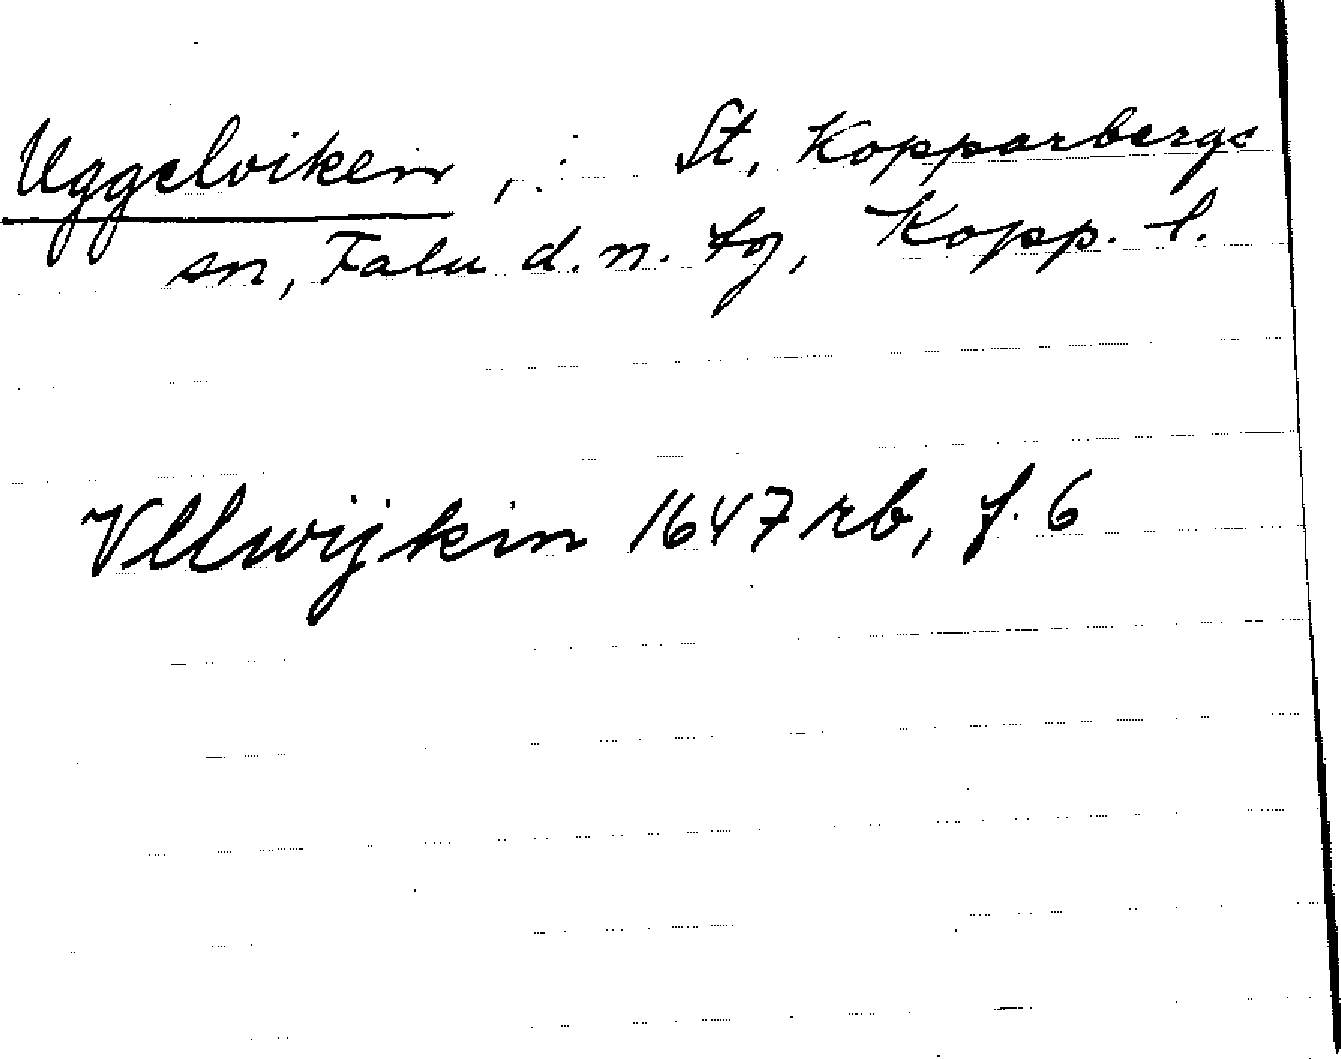 Uggelviken, St. Kopparbergs
sn, Falu d.n. tg, Kopp. l.
Vllwijkin 1647 rb, f. 6